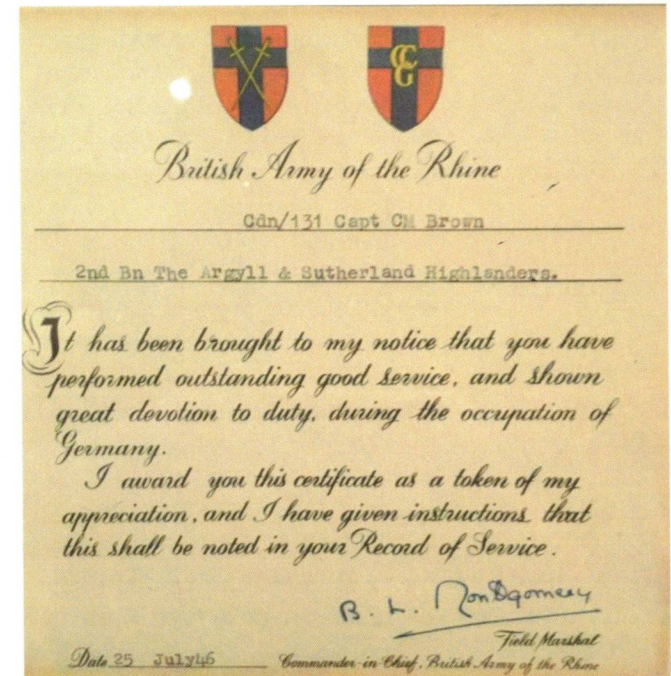 CC
G
British Army of the Rhine
Cdn/131 Capt CM Brown
2nd Bn The Argyll & Sutherland Highlanders.
It has been brought to my notice that you have
performed outstanding good service, and shown
great devotion to duty, during the occupation of
Germany.
I award you this certificate as a token of my
appreciation, and I have given instructions that
this shall be noted in your Record of Service.
B. L. Montgomery
Field Marshal
Date 25 July46 Commander-in-Chief, British Army of the Rhine